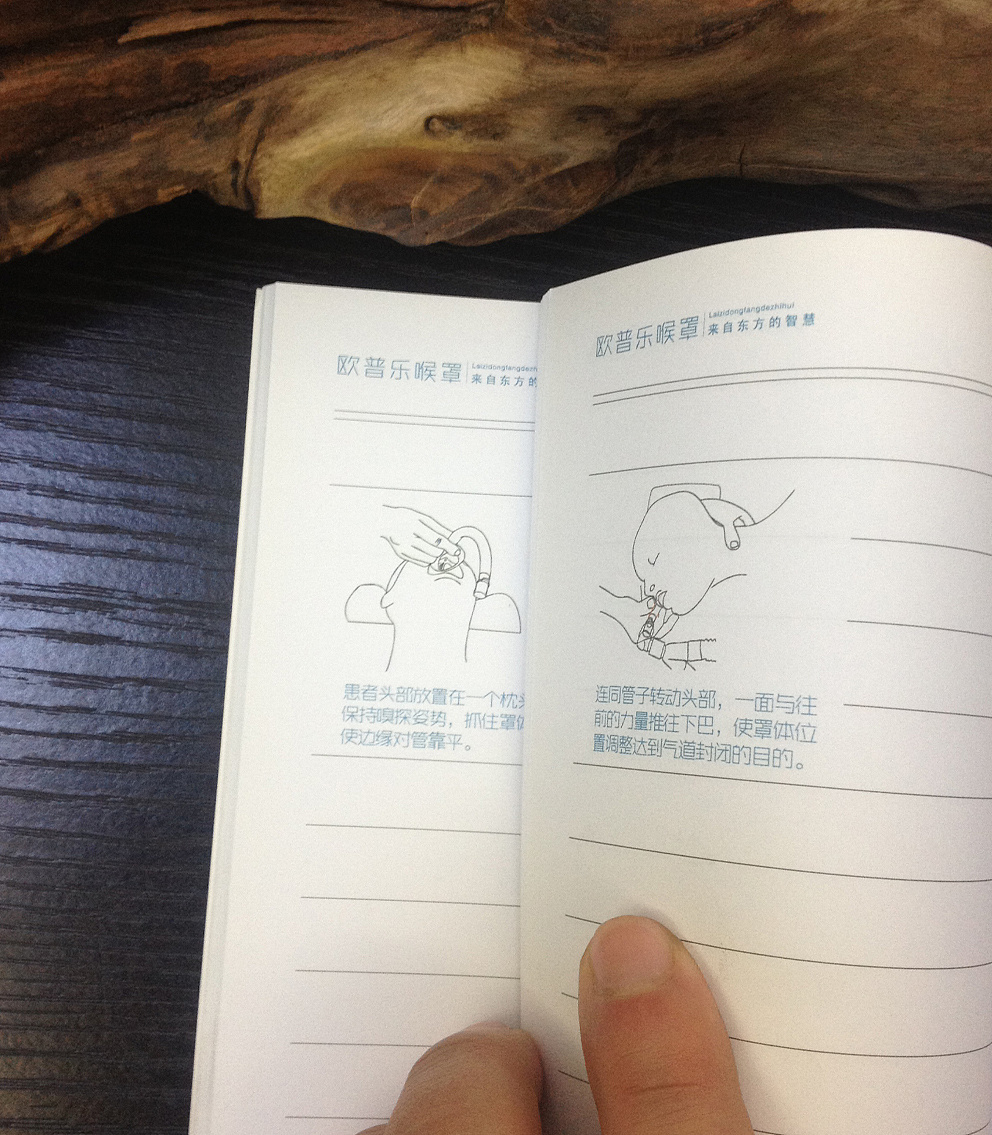 欧普乐喉罩
Laizidongfangdezh
来自东方的
患者头部放置在一个枕头
保持嗅探姿势，抓住罩体
使边缘对管靠平。
欧普乐喉罩
Laizidongfangdezhihui
来自东方的智慧
连同管子转动头部，一面与往
前的力量推往下巴，使罩体位
置调整达到气道封闭的目的。